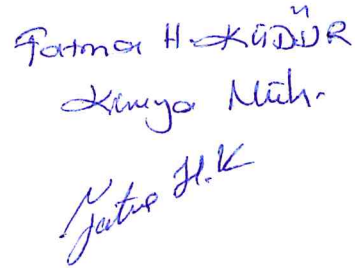 Fatma H. KÜDÜR
Kimya Müh.
Fatma H.K